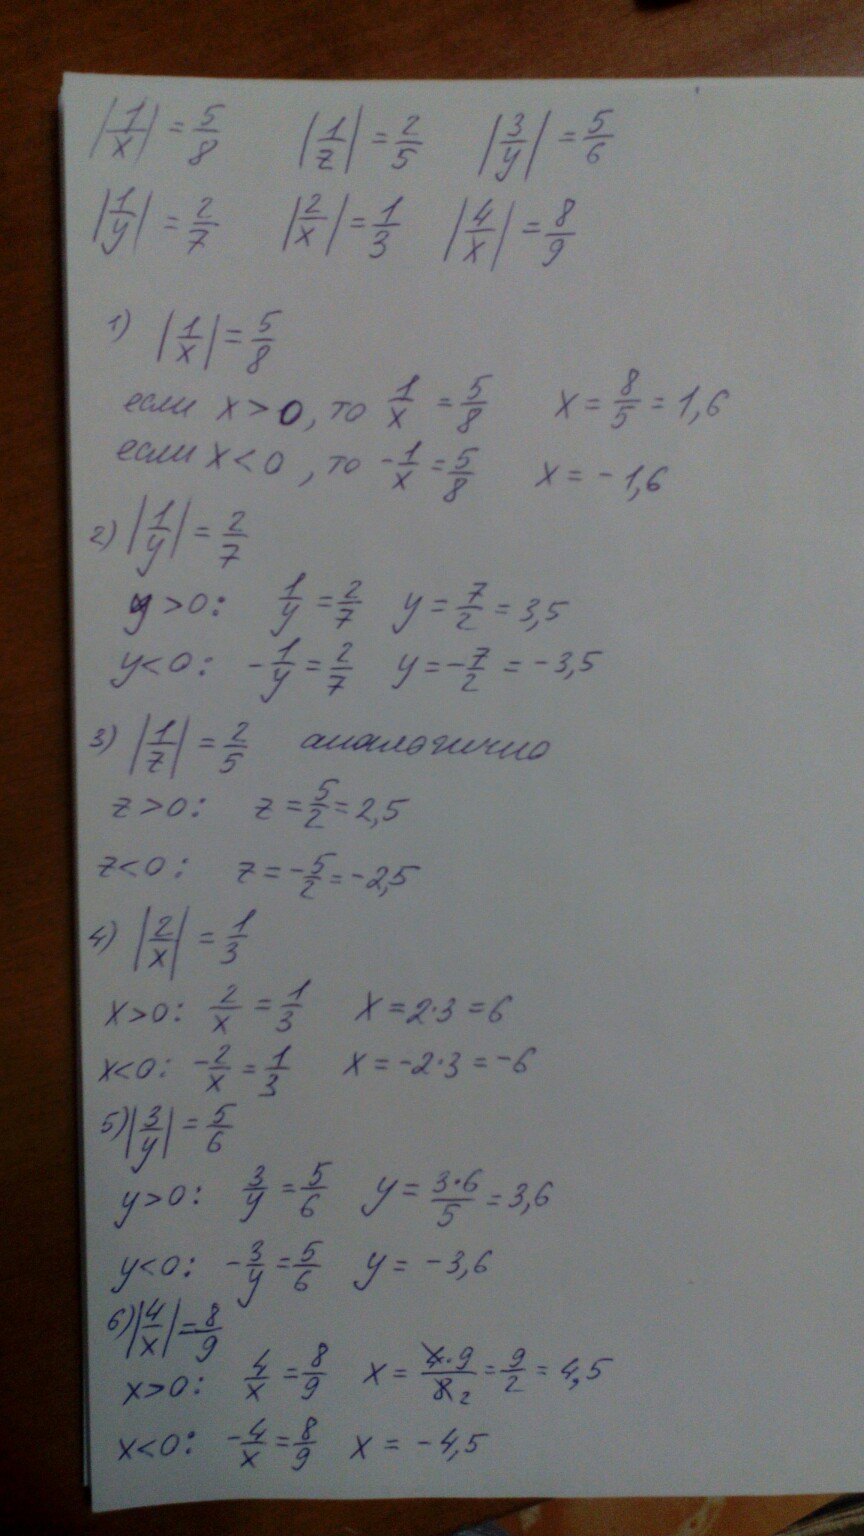 |1/x| = 5/8   |1/z| = 2/5   |3/y| = 5/6
|1/y| = 2/7   |2/x| = 1/3   |4/x| = 8/9
1) |1/x| = 5/8
если x > 0, то 1/x = 5/8   x = 8/5 = 1,6
если x < 0, то -1/x = 5/8   x = -1,6
2) |1/y| = 2/7
y > 0: 1/y = 2/7   y = 7/2 = 3,5
y < 0: -1/y = 2/7   y = -7/2 = -3,5
3) |1/z| = 2/5   аналогично
z > 0: z = 5/2 = 2,5
z < 0: z = -5/2 = -2,5
4) |2/x| = 1/3
x > 0: 2/x = 1/3   x = 2·3 = 6
x < 0: -2/x = 1/3   x = -2·3 = -6
5) |3/y| = 5/6
y > 0: 3/y = 5/6   y = 3·6/5 = 3,6
y < 0: -3/y = 5/6   y = -3,6
6) |4/x| = 8/9
x > 0: 4/x = 8/9   x = 4·9/8 2 = 9/2 = 4,5
x < 0: -4/x = 8/9   x = -4,5